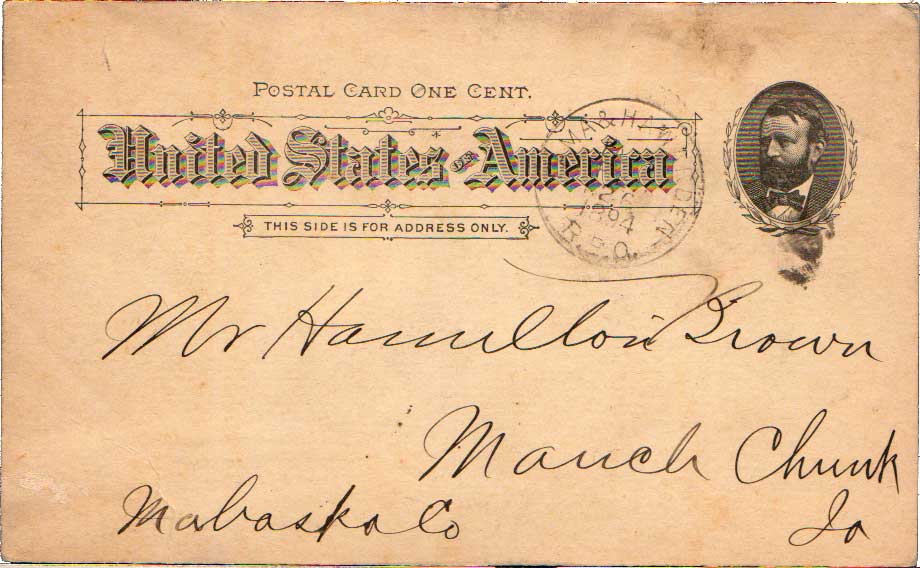 POSTAL CARD ONE CENT.
United States OF America
THIS SIDE IS FOR ADDRESS ONLY.
1894
R.P.O.
Mr Hamilton Brown
Mauch Chunk
Mahaska Co Ia